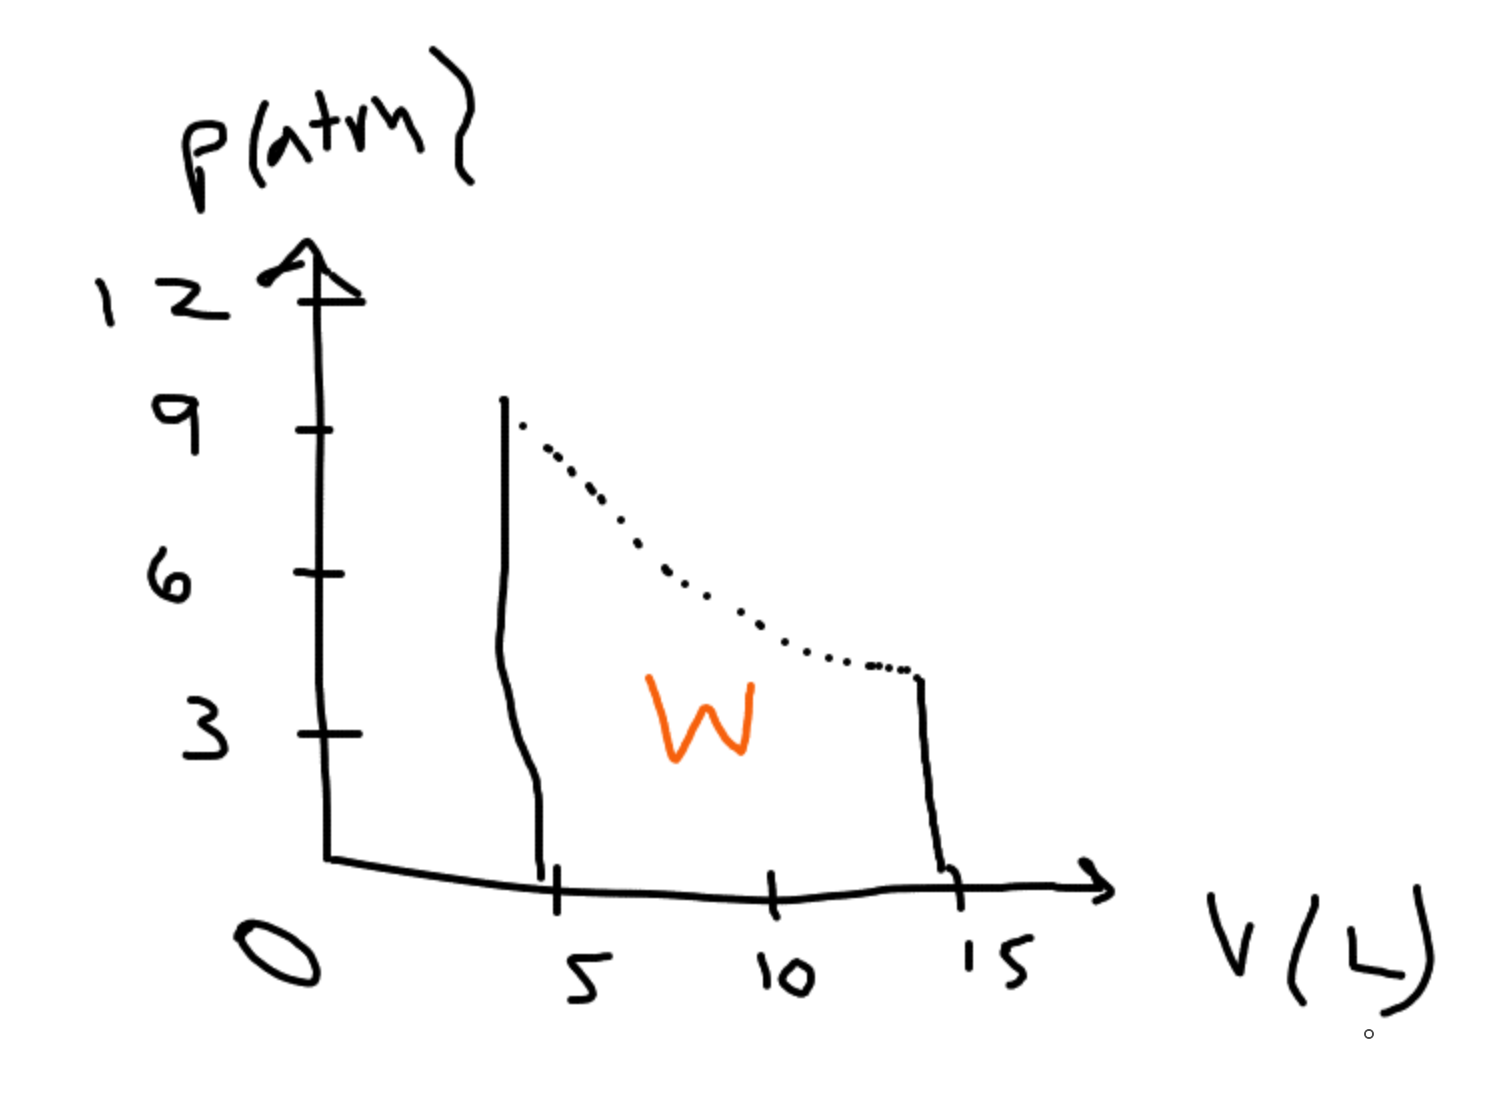 p(atm)
12
9
6
3
W
0
5
10
15
V(L)